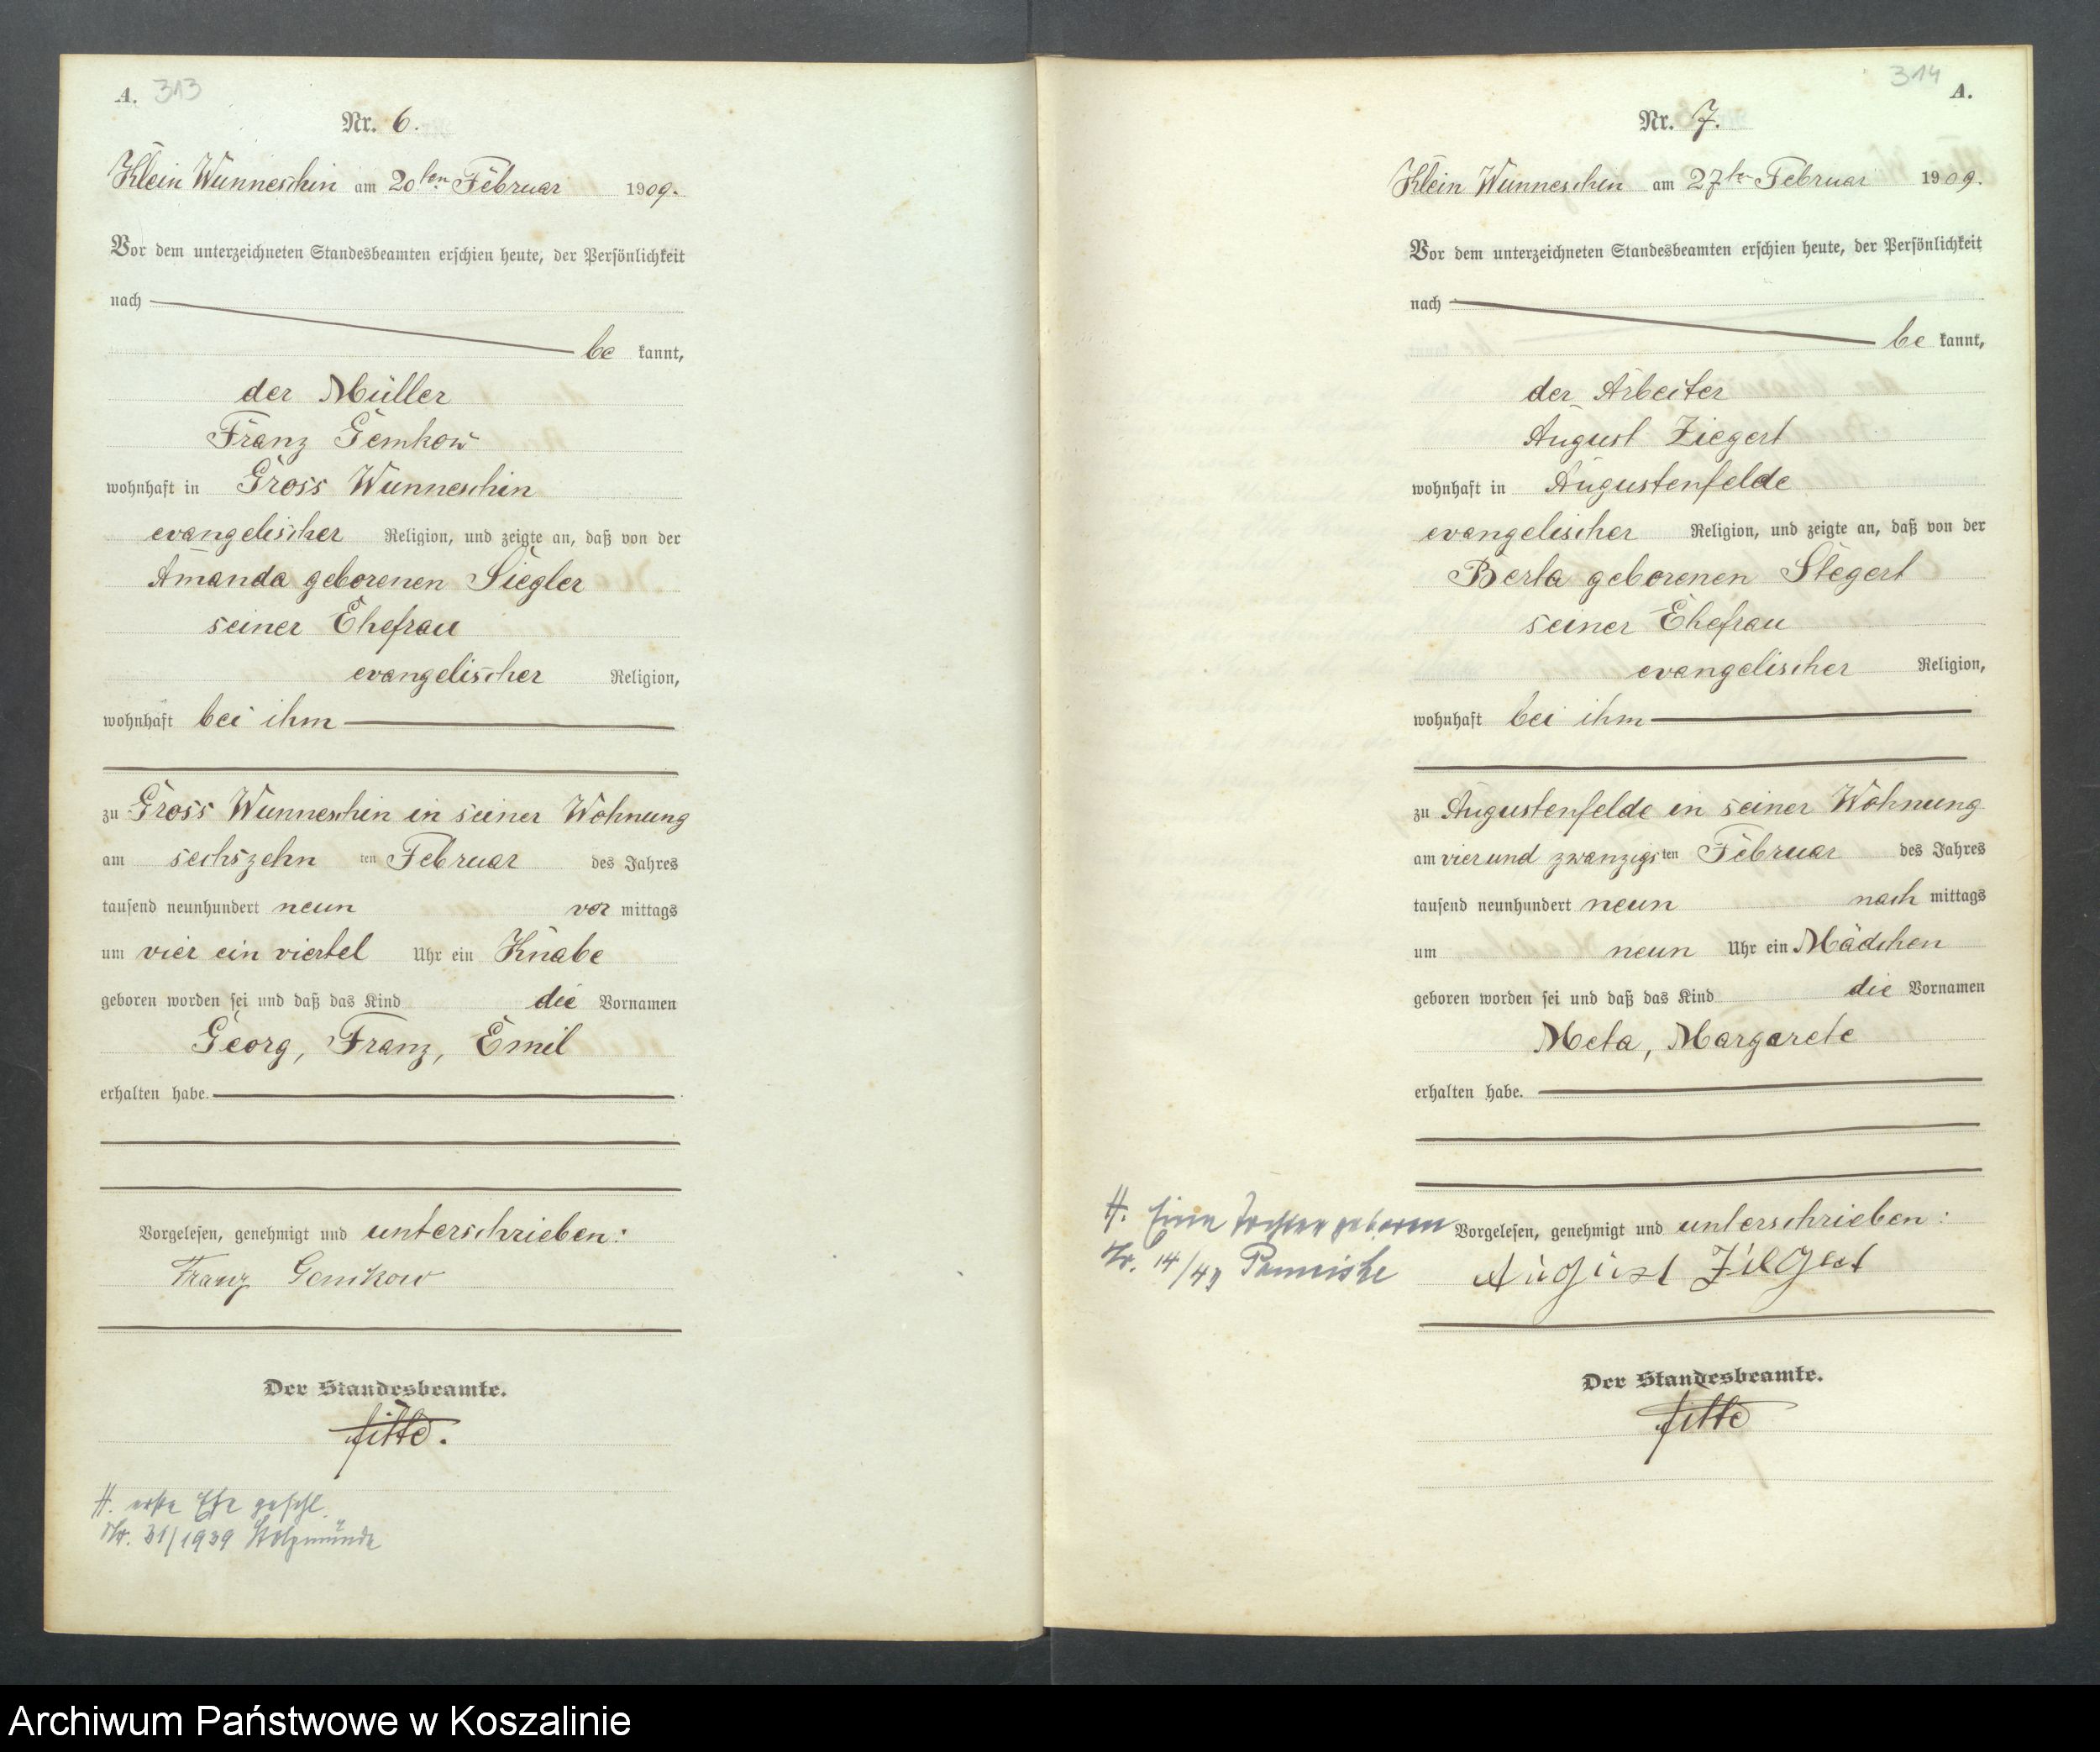 A. 313
Nr. 6.
Klein Wunneschin am 20ten Februar 1909.
Vor dem unterzeichneten Standesbeamten erschien heute, der Persönlichkeit
nach
be kannt,
der Müller
Franz Gemkow
wohnhaft in Gross Wunneschin
evangelischer Religion, und zeigte an, daß von der
Amanda geborenen Siegler
seiner Ehefrau
evangelischer Religion,
wohnhaft bei ihm
zu Gross Wunneschin in seiner Wohnung
am sechszehn ten Februar des Jahres
tausend neunhundert neun vor mittags
um vier ein viertel Uhr ein Knabe
geboren worden sei und daß das Kind die Vornamen
Georg, Franz, Emil
erhalten habe.
Vorgelesen, genehmigt und unterschrieben:
Franz Gemkow
Der Standesbeamte.
H. erste Ehe geschl.
Nr. 31/1939 Stolpmünde
314 A.
Nr. 7.
Klein Wunneschin am 27ten Februar 1909.
Vor dem unterzeichneten Standesbeamten erschien heute, der Persönlichkeit
nach
be kannt,
der Arbeiter
August Ziegert
wohnhaft in Augustenfelde
evangelischer Religion, und zeigte an, daß von der
Berta geborenen Stegert
seiner Ehefrau
evangelischer Religion,
wohnhaft bei ihm
zu Augustenfelde in seiner Wohnung
am vierund zwanzigsten Februar des Jahres
tausend neunhundert neun nach mittags
um neun Uhr ein Mädchen
geboren worden sei und daß das Kind die Vornamen
Meta, Margarete
erhalten habe.
H. Eine Tochter geboren
Nr. 14/
Vorgelesen, genehmigt und unterschrieben:
August Ziegert
Der Standesbeamte.
Archiwum Państwowe w Koszalinie